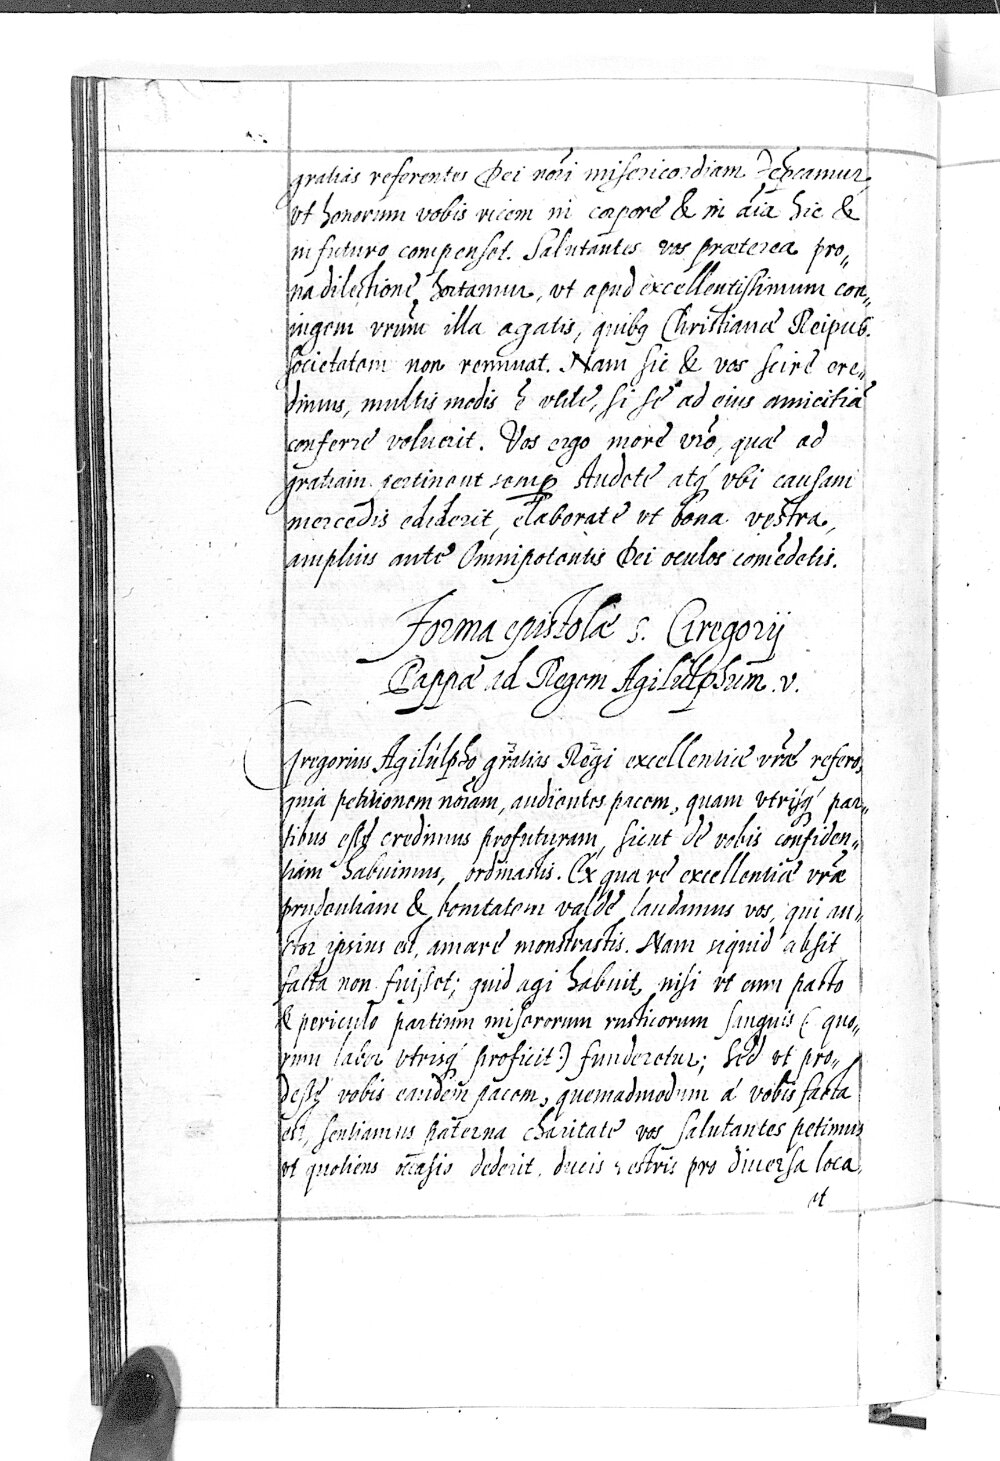 gratias referentes Dei nõri misericordiam deprecamur,
vt honorum vobis vicem in corpore & in aĩa hic &
in futuro compenset. Salutantes vos præterea pro„
na dilectione hortamur, vt apud excellentissimum con„
iugem vrũm illa agatis, quibq Christianæ Reipub.
societatem non rennuat. Nam sic & vos scire cre„
dimus, multis modis ẽ vtile, si se ad eius amicitiã
conferre voluerit. Vos ergo more vrõ, quæ ad
gratiam pertinent semp studete atq́ vbi causam
mercedis ediderit, elaborate vt bona vestra,
amplius ante Omnipotentis Dei oculos comẽdetis.
Forma epistolæ S. Gregorij
Pappæ ad Regem Agilulphum .v.
Gregorius Agilulpho gr̃atias Regi excellentiæ vr̃æ refero,
quia petitionem nõram, audientes pacem, quam vtrijq́ par„
tibus esse credimus profuturam, sicut de vobis confiden„
tiam habuimus, ordinastis. Ex qua re excellentiæ vr̃æ
prudentiam & bonitatem valde laudamus vos, qui au„
ctor ipsius est, amare monstrastis. Nam siquid absit
facta non fuisset; quid agi habuit, nisi vt cum pacto
& periculo partium miserorum rusticorum sanguis (quo„
rum labor vtrisq́ proficit) funderetur; Sed vt pro„
desse vobis eandem pacem, quemadmodum á vobis facta
est, sentiamus paterna charitate vos salutantes petimus
vt quotiens occasio dederit ducis vestris pro diuersa loca
et